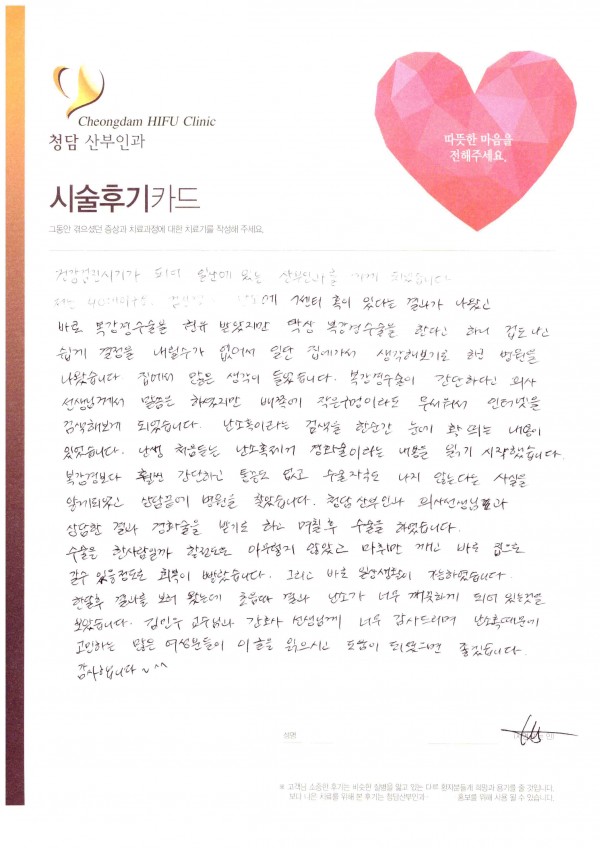 Cheongdam HIFU Clinic
청담 산부인과
따뜻한 마음을
전해주세요.
시술후기카드
그동안 겪으셨던 증상과 치료과정에 대한 치료기를 작성해 주세요.
건강검진시기가 되어 일산에 있는 산부인과를 가게 되었습니다
저는 40대이구요. 에 7센티 혹이 있다는 결과가 나왔고
바로 복강경수술을 권유 받았지만 막상 복강경수술을 한다고 하니 겁도 나고
쉽게 결정을 내릴수가 없어서 일단 집에가서 생각해보기로 하고 병원을
나왔습니다 집에서 많은 생각이 들었습니다. 복강경수술이 간단하다고 의사
선생님께서 말씀은 하셨지만 배쪽에 작은구멍이라도 무서워서 인터넷을
검색해보게 되었습니다. 난소혹이라는 검색을 한순간 눈에 확 띄는 내용이
있었습니다. 난생 처음듣는 난소혹제거 경화술이라는 내용을 읽기 시작했습니다.
복강경보다 훨씬 간단하고 통증도 없고 수술자국도 나지 않는다는 사실을
알게되었고 상담끝에 병원을 찾았습니다. 청담산부인과 의사선생님과
상담한 결과 경화술을 받기로 하고 며칠후 수술을 하였습니다.
수술을 한사람일까 할정도로 아무렇지 않았고 마취만 깨고 바로 집으로
갈수 있을정도로 회복이 빨랐습니다. 그리고 바로 일상생활이 가능하였습니다.
한달후 결과를 보러 왔는데 초음파 결과 난소가 너무 깨끗하게 되어 있는것을
보았습니다. 김민우 교수님과 간호사 선생님께 너무 감사드리며 난소혹때문에
고민하는 많은 여성분들이 이글을 읽으시고 도움이 되었으면 좋겠습니다.
감사합니다~^^
성명
※ 고객님 소중한 후기는 비슷한 질병을 앓고 있는 다른 환자분들게 희망과 용기를 줄 것입니다.
보다 나은 치료를 위해 본 후기는 청담산부인과 홍보를 위해 사용 될 수 있습니다.